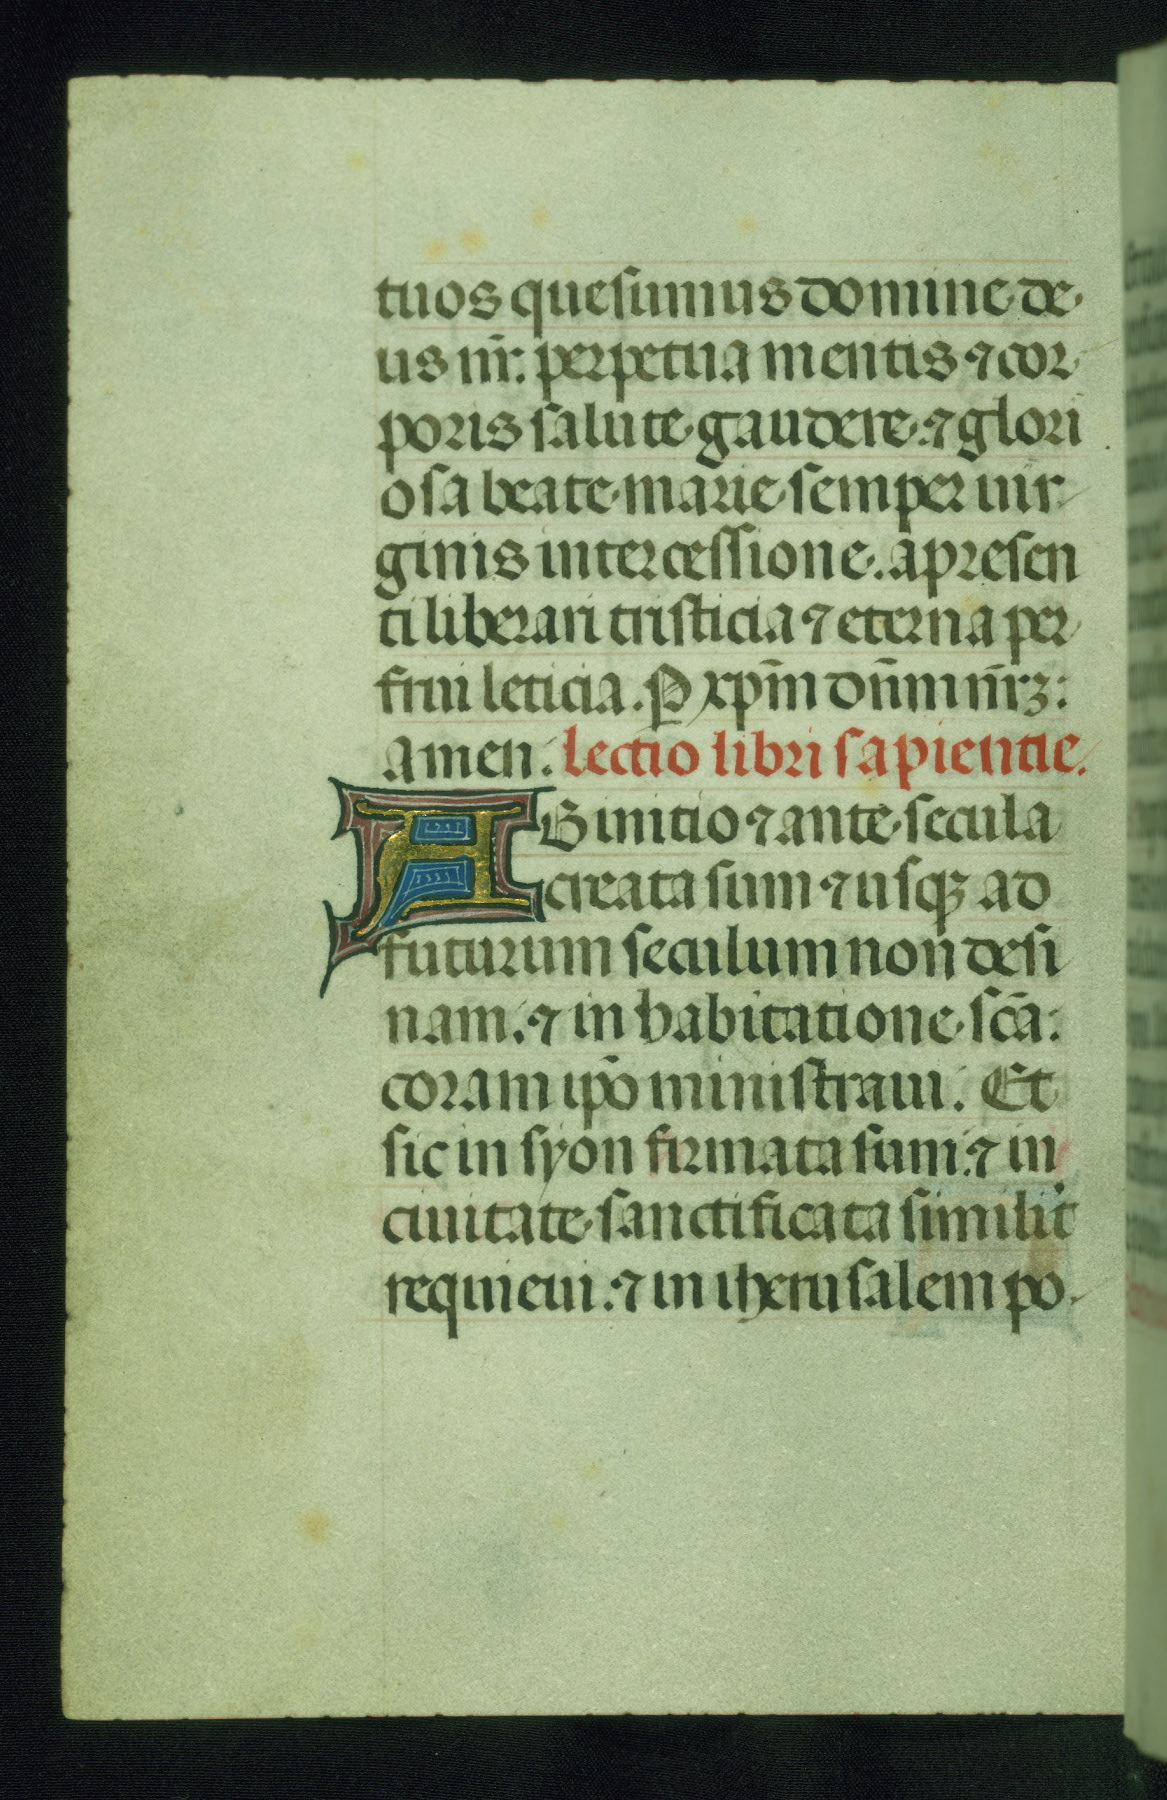 tuos quesumus domine de
us nr̄. perpetua mentis ⁊ cor
poris salute gaudere. ⁊ glori
osa beate marie semper uir
ginis intercessione. a presen
ti liberari tristicia ⁊ eterna per
frui leticia. P xp̄m dn̄m nr̄ꝫ:
amen. lectio libri sapientie.
AB initio ⁊ ante secula
creata sum ⁊ usqꝫ ad
futurum seculum non desi
nam. ⁊ in habitatione sc̄a:
coram ip̄o ministraui. Et
sic in syon firmata sum: ⁊ in
ciuitate sanctificata similit̉
requieui: ⁊ in iherusalem po